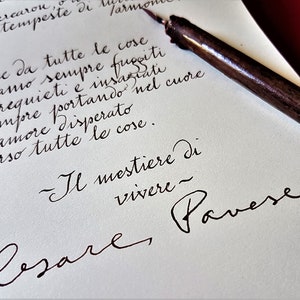 tempeste di
armonie
e da tutte le cose
amo sempre fuggiti
requieti e insaziati
mpre portando nel cuore
amore disperato
rso tutte le cose.
~Il mestiere di
vivere~
Cesare Pavese